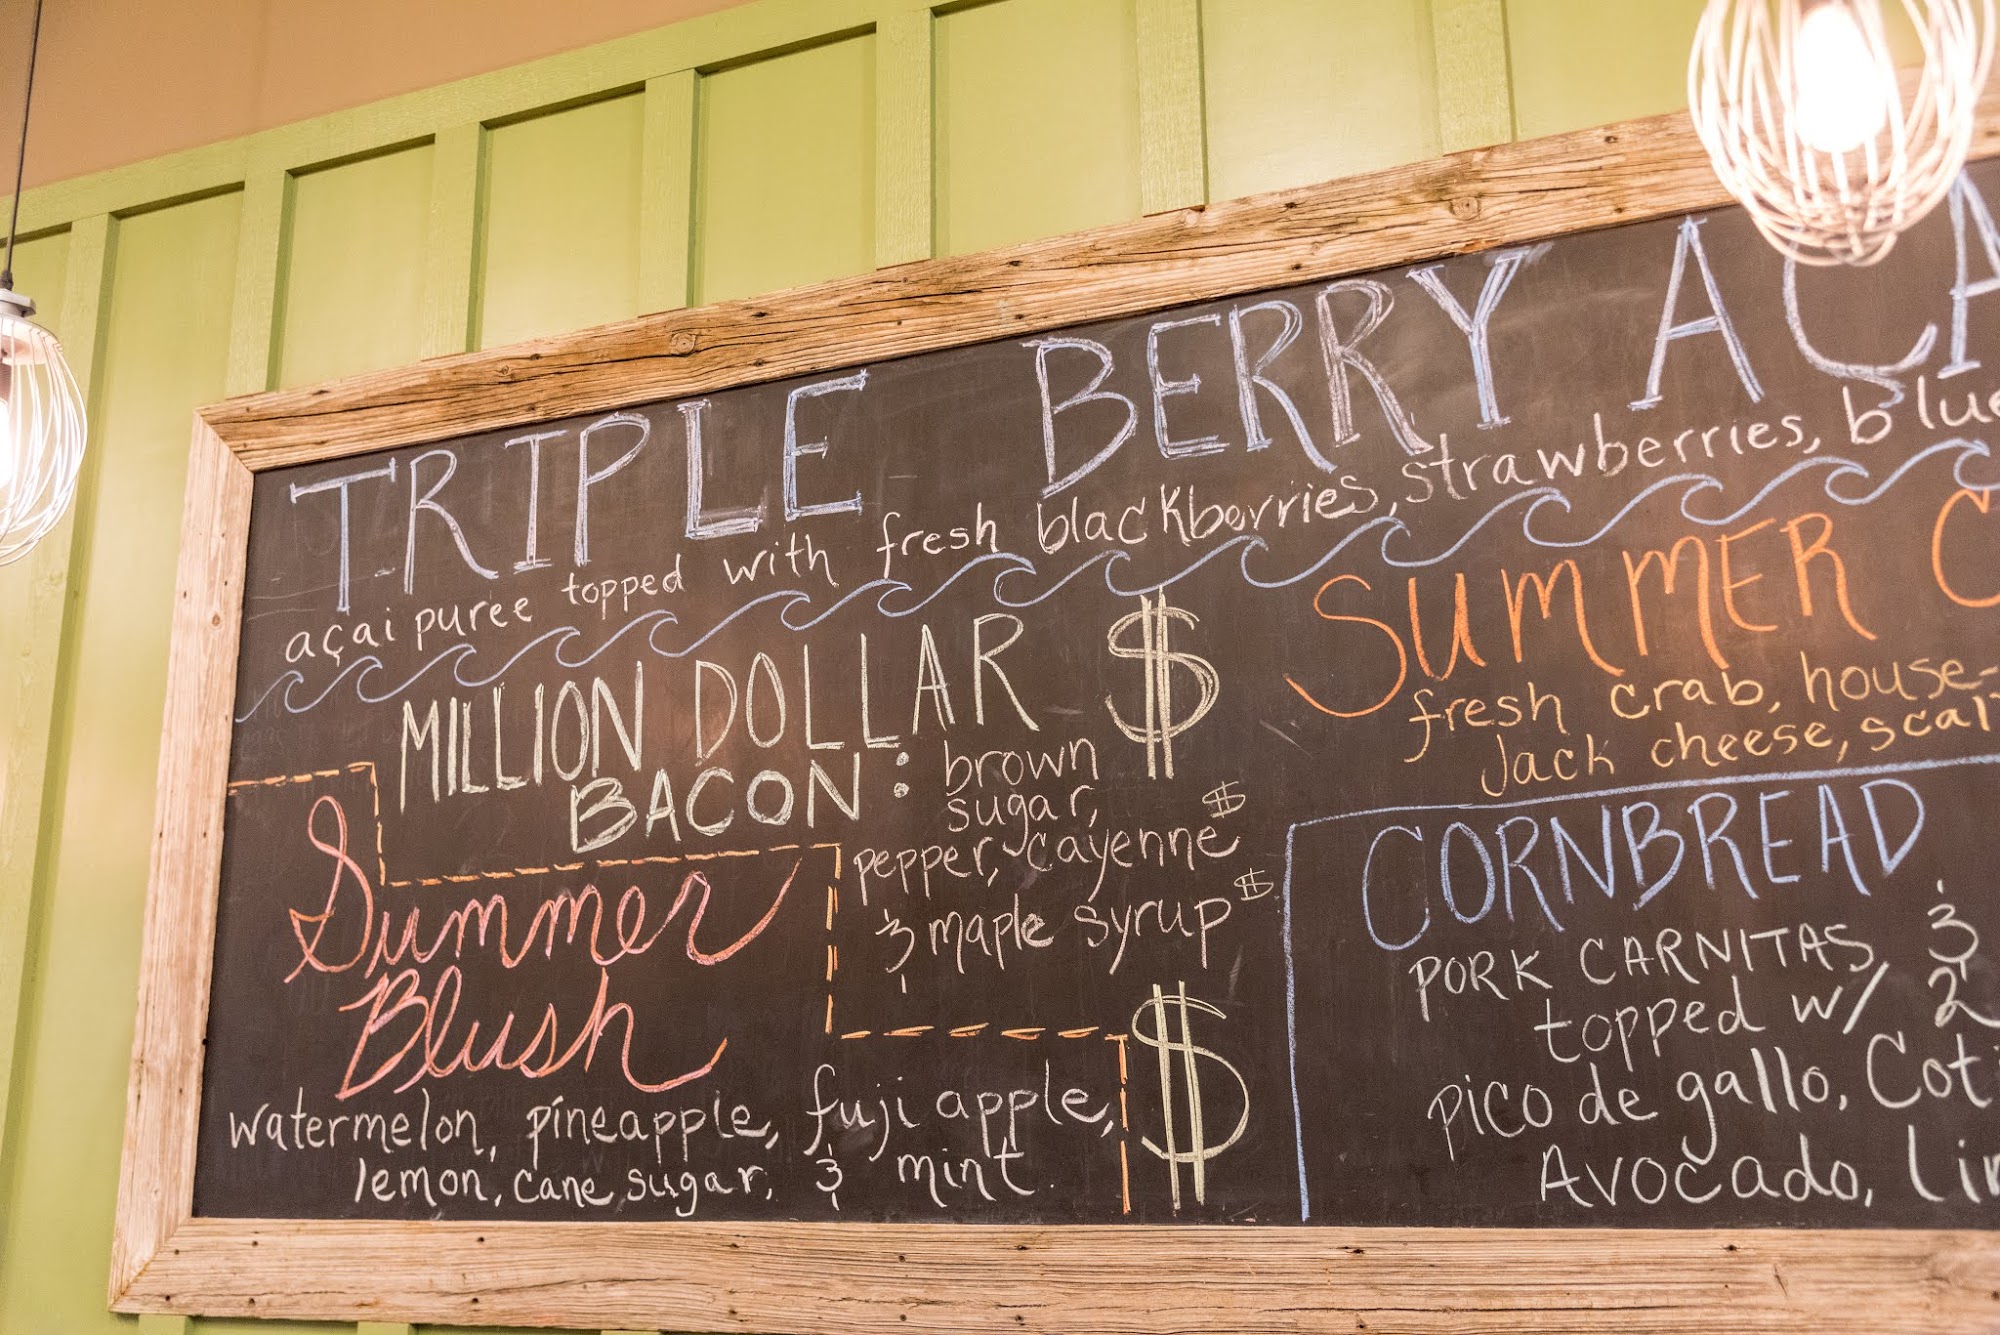 TRIPLE BERRY AÇA
açai puree topped with fresh blackberries, strawberries, blue
MILLION DOLLAR $
BACON: brown
sugar,
pepper, cayenne $
& maple syrup $
$
Summer
Blush
watermelon, pineapple, fuji apple,
lemon, cane sugar, & mint.
SUMMER C
fresh crab, house-
Jack cheese, scal
CORNBREAD
PORK CARNITAS &
topped w/ 2
pico de gallo, Coti
Avocado, lim